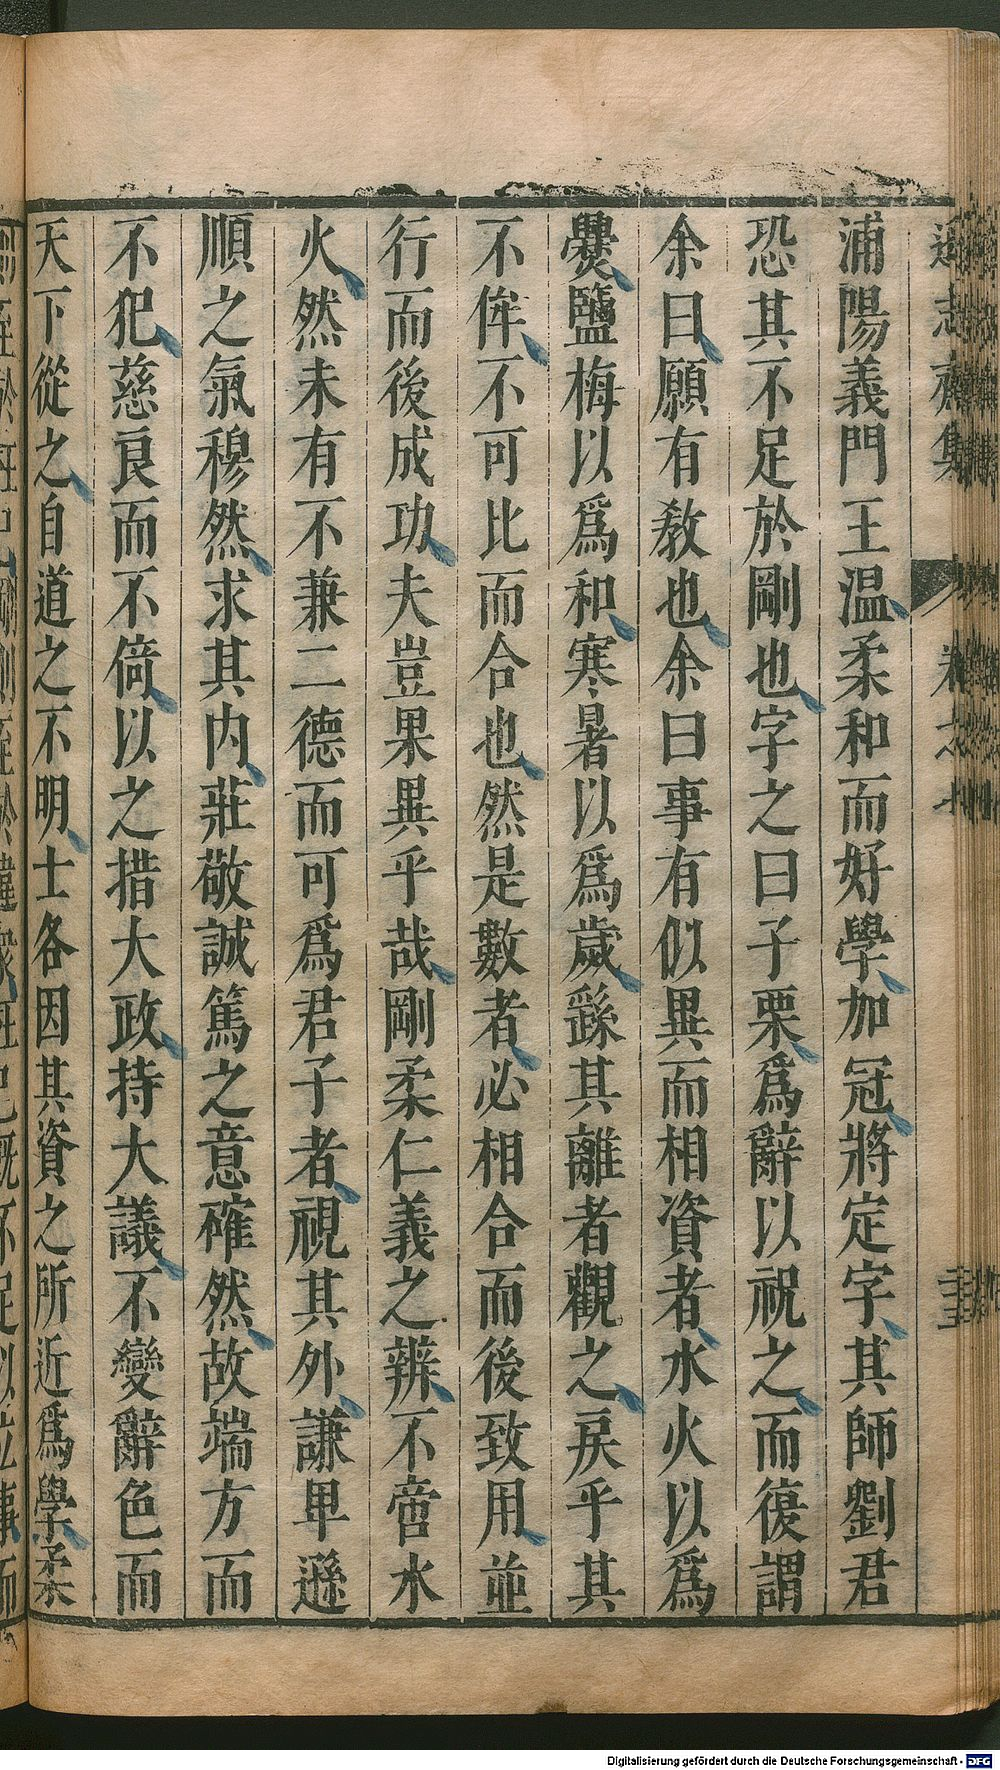 浦陽義門王溫柔和而好學加冠將定字其師劉君
恐其不足於剛也字之曰子栗爲辭以祝之而復謂
余曰願有敎也余曰事有似異而相資者水火以爲
爨鹽梅以爲和寒暑以爲歲繇其離者觀之戾乎其
不侔不可比而合也然是數者必相合而後致用並
行而後成功夫豈果異乎哉剛柔仁義之辨不啻水
火然未有不兼二德而可爲君子者視其外謙卑遜
順之氣穆然求其内莊敬誠篤之意確然故端方而
不犯慈良而不倚以之措大政持大議不變辭色而
天下從之自道之不明士各因其資之所近爲學柔
Digitalisierung gefördert durch die Deutsche Forschungsgemeinschaft - DFG